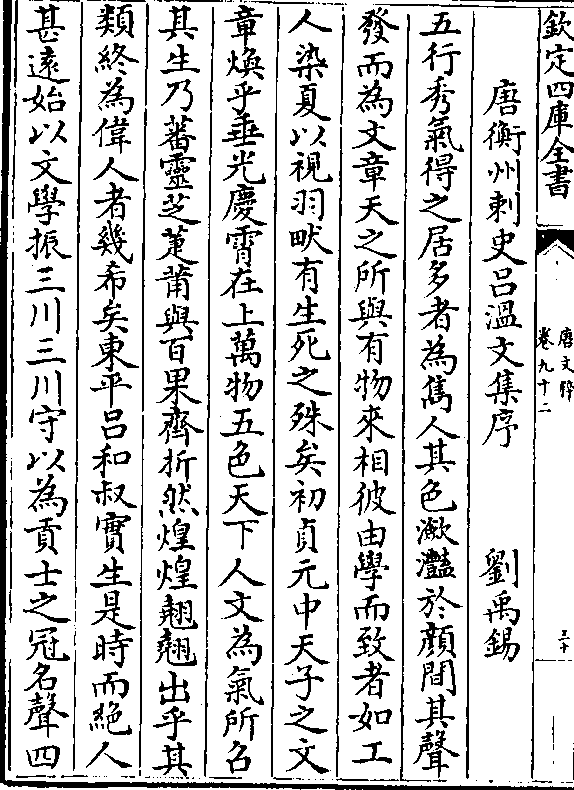 欽定四庫全書
唐文粹
卷九十二
三十
唐衡州刺史呂溫文集序 劉禹錫
五行秀氣得之居多者為雋人其色瀲灩於顔間其聲
發而為文章天之所與有物來相彼由學而致者如工
人染夏以視羽畎有生死之殊矣初貞元中天子之文
章煥乎垂光慶霄在上萬物五色天下人文為氣所召
其生乃蕃靈芝萐莆與百果齊折然煌煌翹翹出乎其
類終為偉人者幾希矣東平呂和叔實生是時而絶人
甚遠始以文學振三川三川守以為貢士之冠名聲四